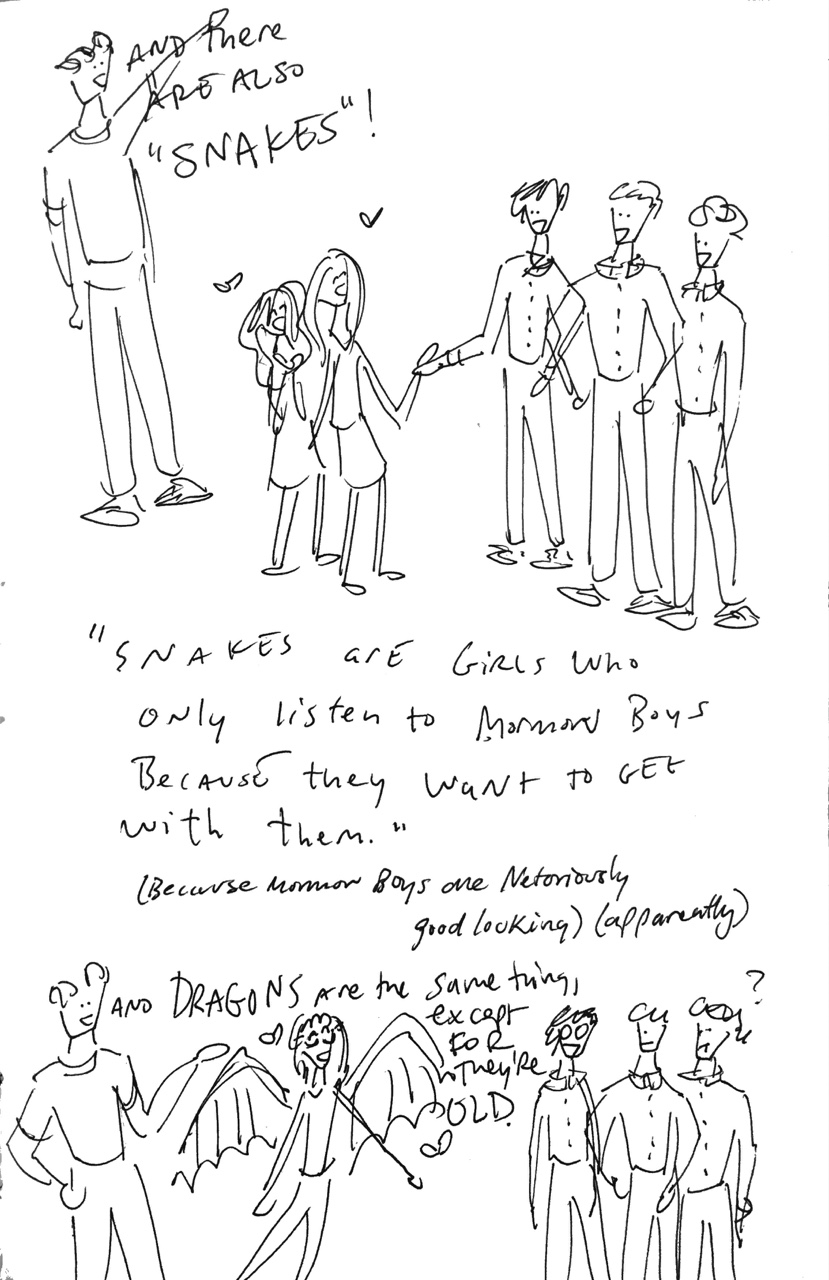 AND there
ARE ALSO
"SNAKES"!
"SNAKES are GIRLS who
only listen to Mormon Boys
Because they want to GET
with them."
(Because Mormon Boys are Notoriously
good looking) (apparently)
AND DRAGONS are the same thing,
except
FOR
they're
OLD.
?